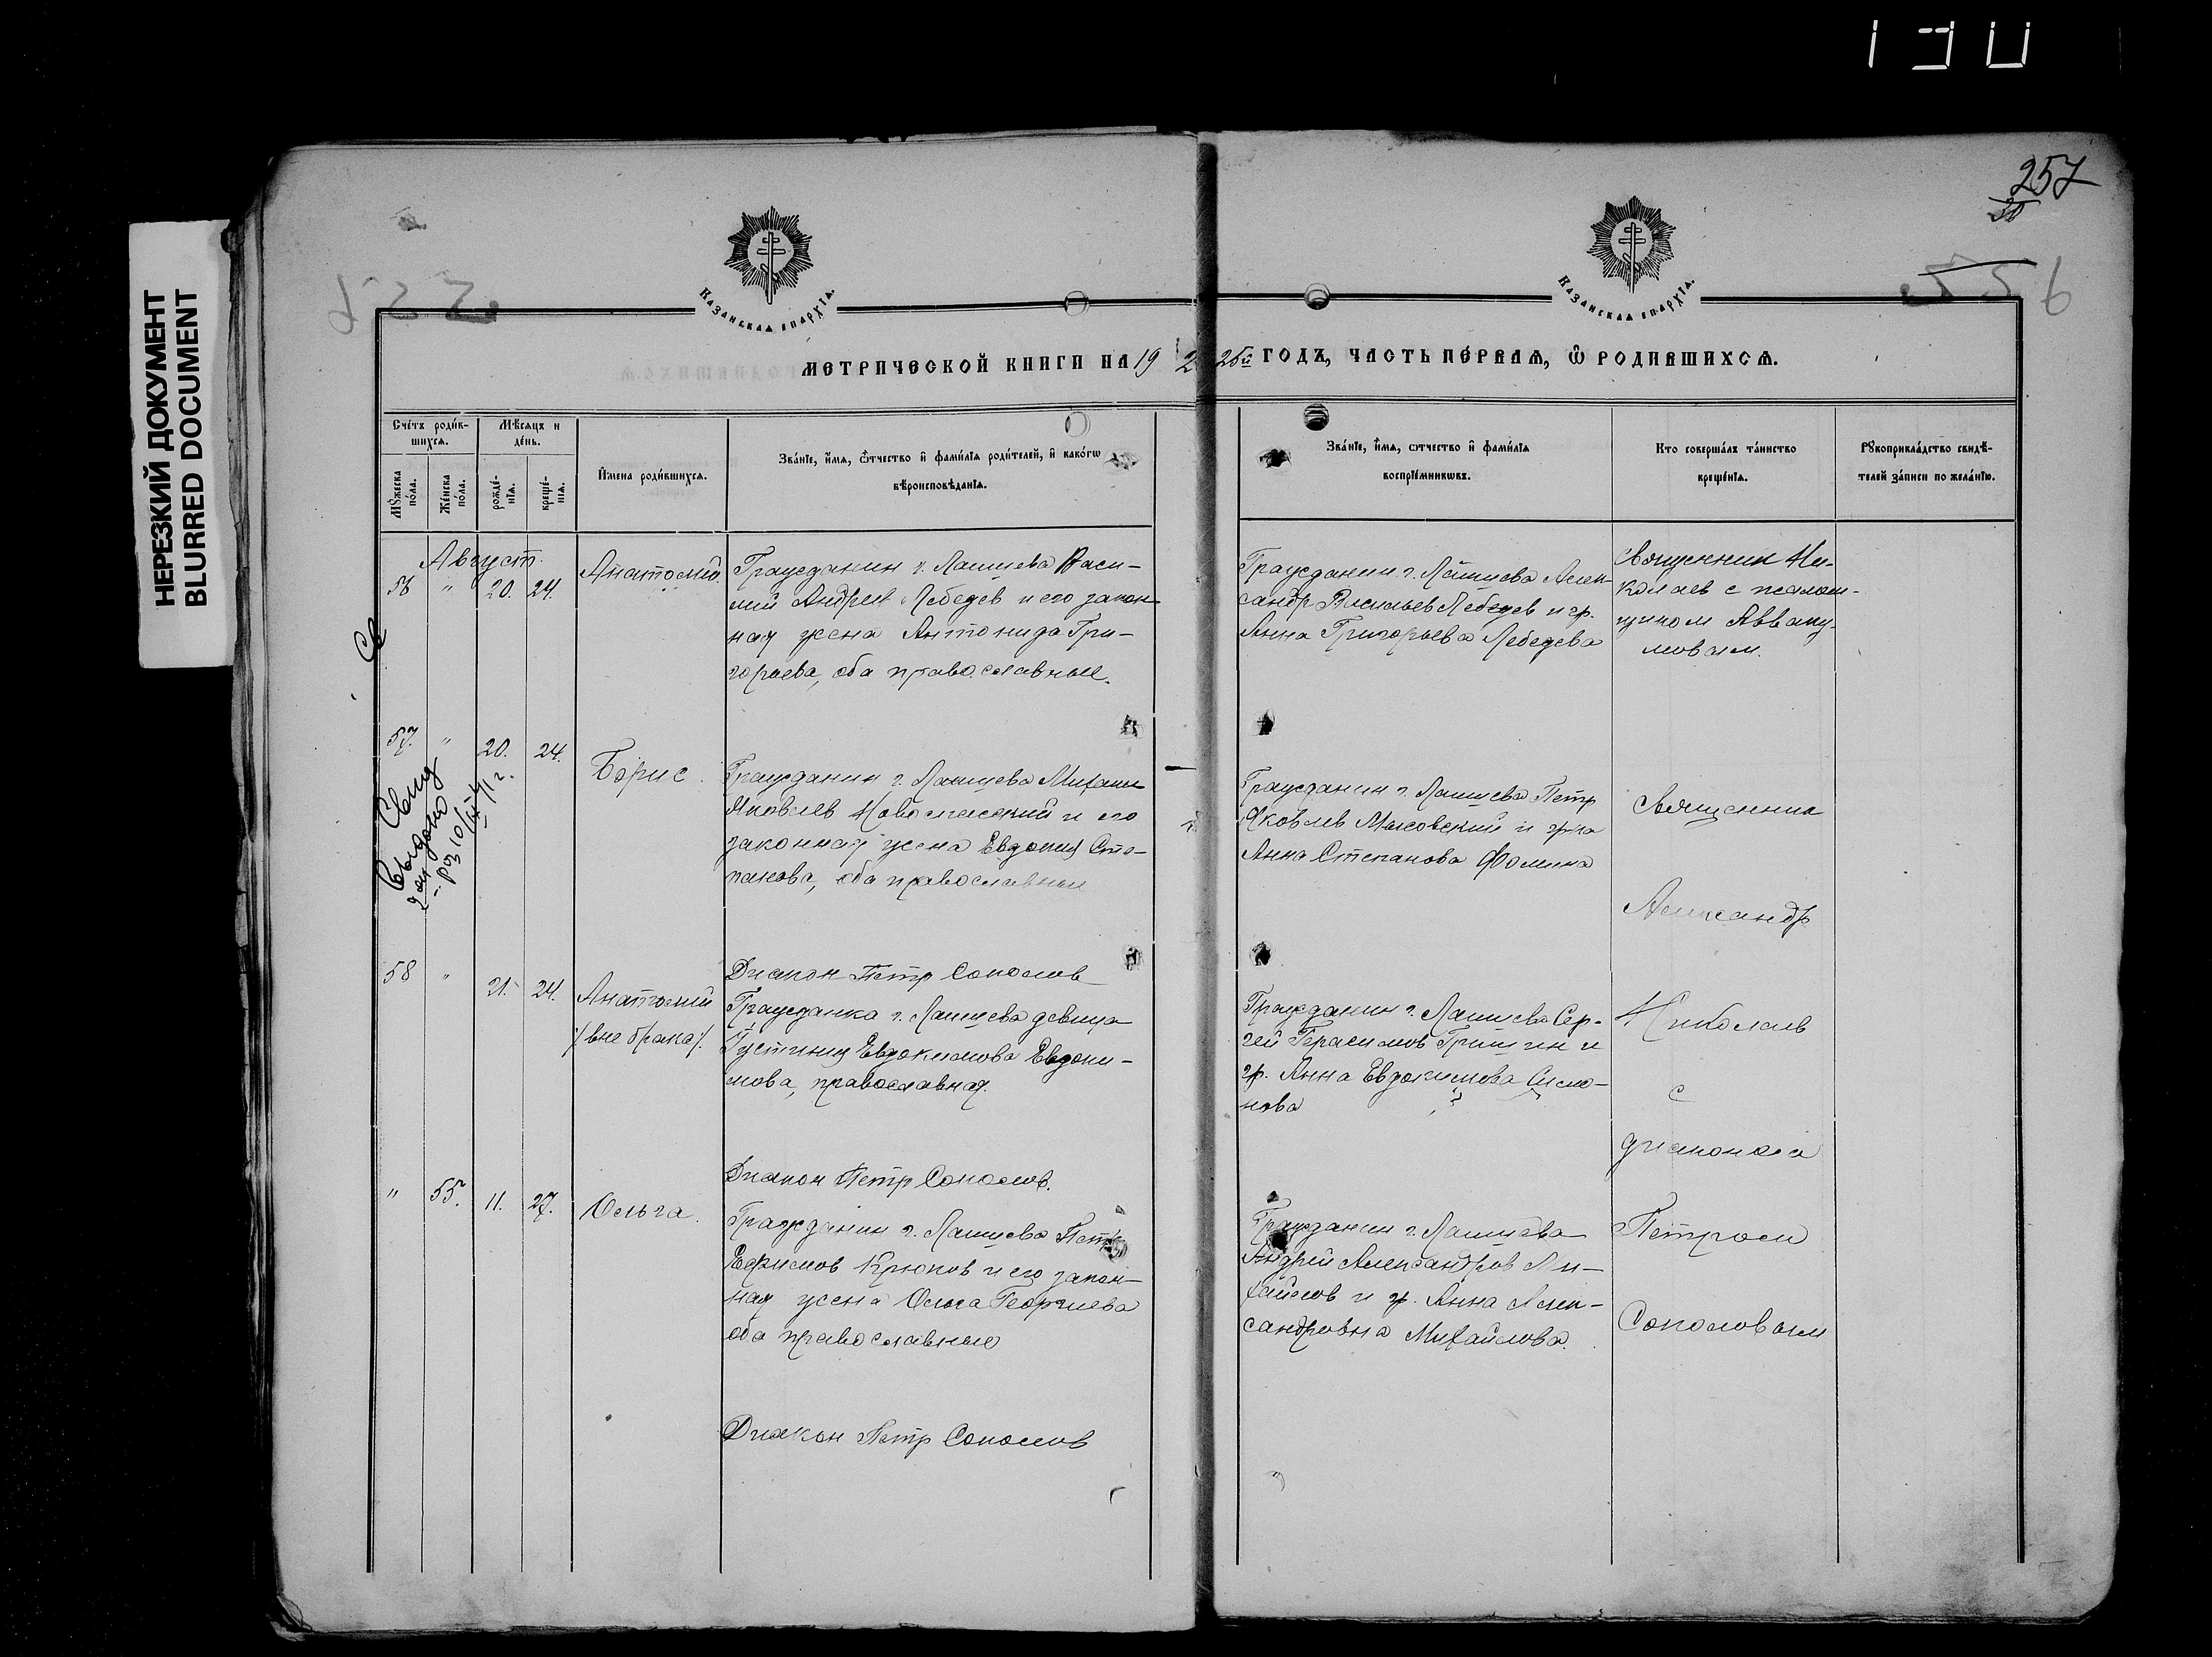 НЕРЕЗКИЙ ДОКУМЕНТ
BLURRED DOCUMENT
257
КАЗАНСКАЯ ЕПАРХІѦ.
КАЗАНСКАЯ ЕПАРХІѦ.
МЕТРИЧЕСКОЙ КНИГИ НА 19 25й ГОДЪ, ЧАСТЬ ПЕ́РВАѦ, Ѡ РОДИВШИХСѦ.
Сче́тъ роди́в-
шихсѧ.
Мꙋ́жеска
по́ла.
Же́нска
по́ла.
Мѣ́сѧцъ и
де́нь.
рожде́-
нїѧ.
креще́-
нїѧ.
И҆мена роди́вшихсѧ.
Зва́нїе, и҆́мѧ, ѻ҆́тчество и҆ фами́лїѧ роди́телей, и҆ како́гѡ
вѣроисповѣ́данїѧ.
Зва́нїе, и҆́мѧ, ѻ҆тчество и҆ фами́лїѧ
воспрїе́мникѡвъ.
Кто соверша́лъ та́инство
креще́нїѧ.
Рꙋкоприкла́дство свидѣ́-
телей за́писи по жела́нїю.
Август.
56 " 20. 24. Анатолий.
Гражданин г. Лаишева Васи-
лий Андреев Лебедев и его закон-
ная жена Антонида Гри-
горьева, оба православные.
Гражданин г. Лаишева Алек
сандр Васильев Лебедев и гр.
Анна Григорьева Лебедева
Священник Ни-
колаев с псалом-
щиком Авваку-
мовым.
57. " 20. 24. Борис.
Гражданин г. Лаишева Михаил
Яковлев и его
законная жена Евдокия Сте-
панова, оба православные
Гражданин г. Лаишева Петр
Яковлев и гр-ка
Анна Степанова Фомина
Священник
Александр
Свид
выдано
58 " 21. 24. Анатолий
/вне брака/.
Диакон Петр Соколов
Гражданка г. Лаишева девица
Устиния Евдокимова Евдоки-
мова, православная.
Гражданин г. Лаишева Сер-
гей Герасимов Гришин и
гр. Анна Евдокимова Симо-
нова
Николаев
с
диаконом
Диакон Петр Соколов.
" 55. 11. 27. Ольга.
Гражданин г. Лаишева Петр
Ефимов Крюков и его закон-
ная жена Ольга Георгиева
оба православные
Гражданин г. Лаишева
Андрей Александров Ми-
хайлов и гр. Анна Алек-
сандровна Михайлова.
Петром
Соколовым
Диакон Петр Соколов